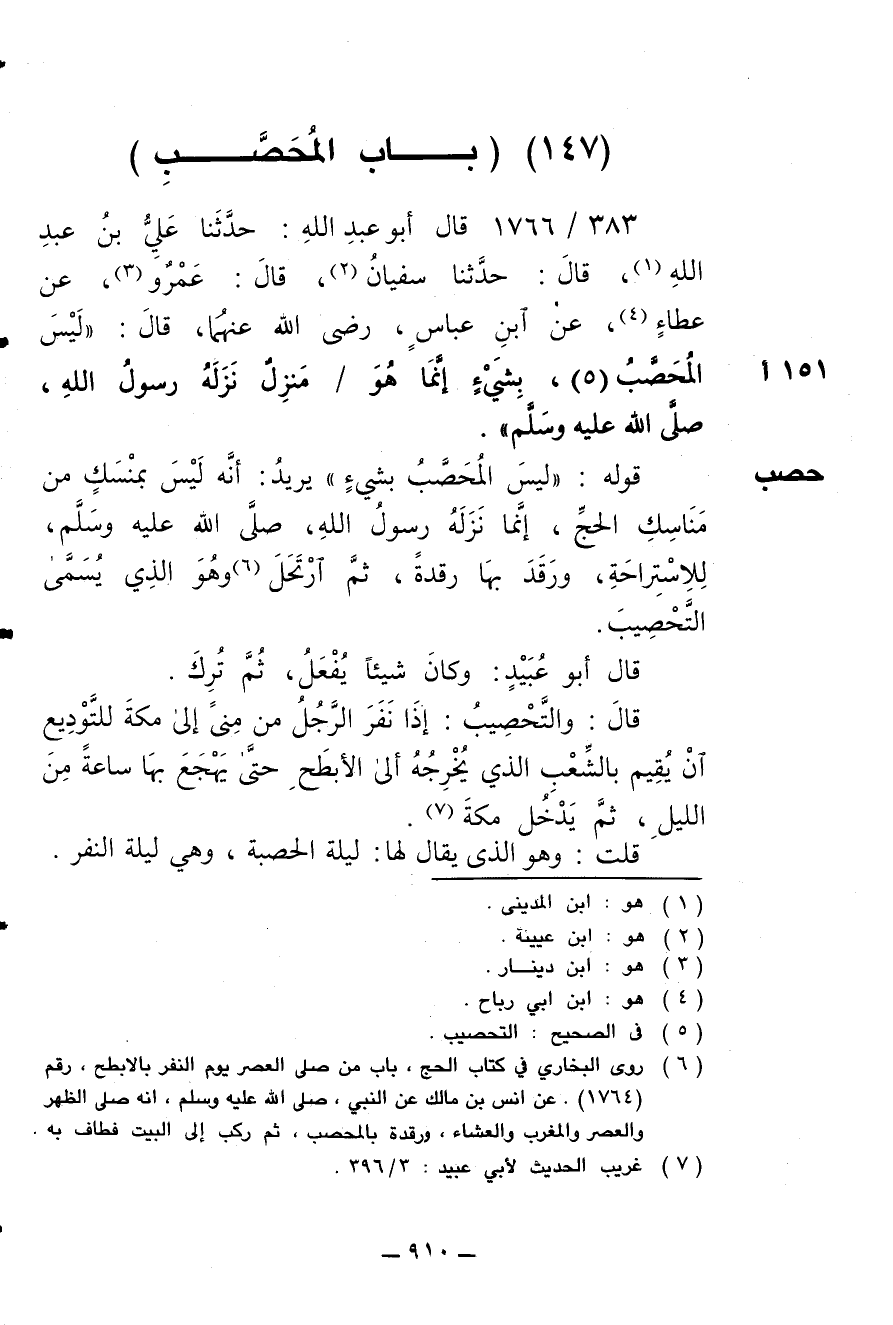 (١٤٧) ( بـــاب المُحَصَّـــبِ )
٣٨٣ / ١٧٦٦ قال أبو عبدِ اللهِ : حدَّثَنا عَلِيُّ بنُ عبدِ
اللهِ (١)، قالَ : حدَّثنا سفيانُ (٢)، قالَ : عَمْرٌو (٣)، عن
عطاءٍ (٤)، عنْ ٱبنِ عباسٍ ، رضى الله عنهُما، قالَ : «لَيْسَ
المُحَصَّبُ (٥) ، بِشَيْءٍ إنَّمَا هُوَ / مَنزِلٌ نَزَلَهُ رسولُ اللهِ ،
١٥١ أ
صلَّى الله عليه وسَلَّم» .
حصب
قوله : «ليسَ المُحَصَّبُ بشيءٍ » يريدُ: أنَّه لَيْسَ بمْنْسَكٍ من
مَنَاسِكِ الحجِّ ، إنَّما نَزَلَهُ رسولُ اللهِ، صلَّى الله عليه وسَلَّم،
لِلِاسْتِراحَةِ، ورَقَدَ بهَا رقدةً ، ثمَّ ٱرْتَحَلَ (٦)وهُوَ الذِي يُسَمَّىٰ
التَّحْصِيبَ.
قال أبو عُبَيْدٍ: وكانَ شيئاً يُفْعَلُ، ثُمَّ تُرِكَ .
قالَ : والتَّحْصِيبُ : إذَا نَفَرَ الرَّجُلُ من مِنىً إلىٰ مكةَ للتَّوْدِيع
آنْ يُقِيم بالشِّعْبِ الذي يُخْرِجُهُ ألىٰ الأبطَحِ حتَّىٰ يَهْجَعَ بهَا ساعةً مِنَ
الليلِ ، ثمَّ يَدْخُل مكةَ (٧) .
قلت : وهو الذى يقال لها: ليلة الحصبة ، وهي ليلة النفر .
(١) هو : ابن المدينى .
(٢) هو : ابن عيينة .
(٣) هو : ابن دينـــار .
(٤) هو : ابن ابي رباح .
(٥) فى الصحيح : التحصيب .
(٦) روى البخاري في كتاب الحج ، باب من صلى العصر يوم النفر بالابطح ، رقم
(١٧٦٤) . عن انس بن مالك عن النبي ، صلى الله عليه وسلم ، انه صلى الظهر
والعصر والمغرب والعشاء ، ورقدة بالمحصب ، ثم ركب إلى البيت فطاف به .
(٧) غريب الحديث لأبي عبيد : ٣٩٦/٣ .
— ٩١٠ —